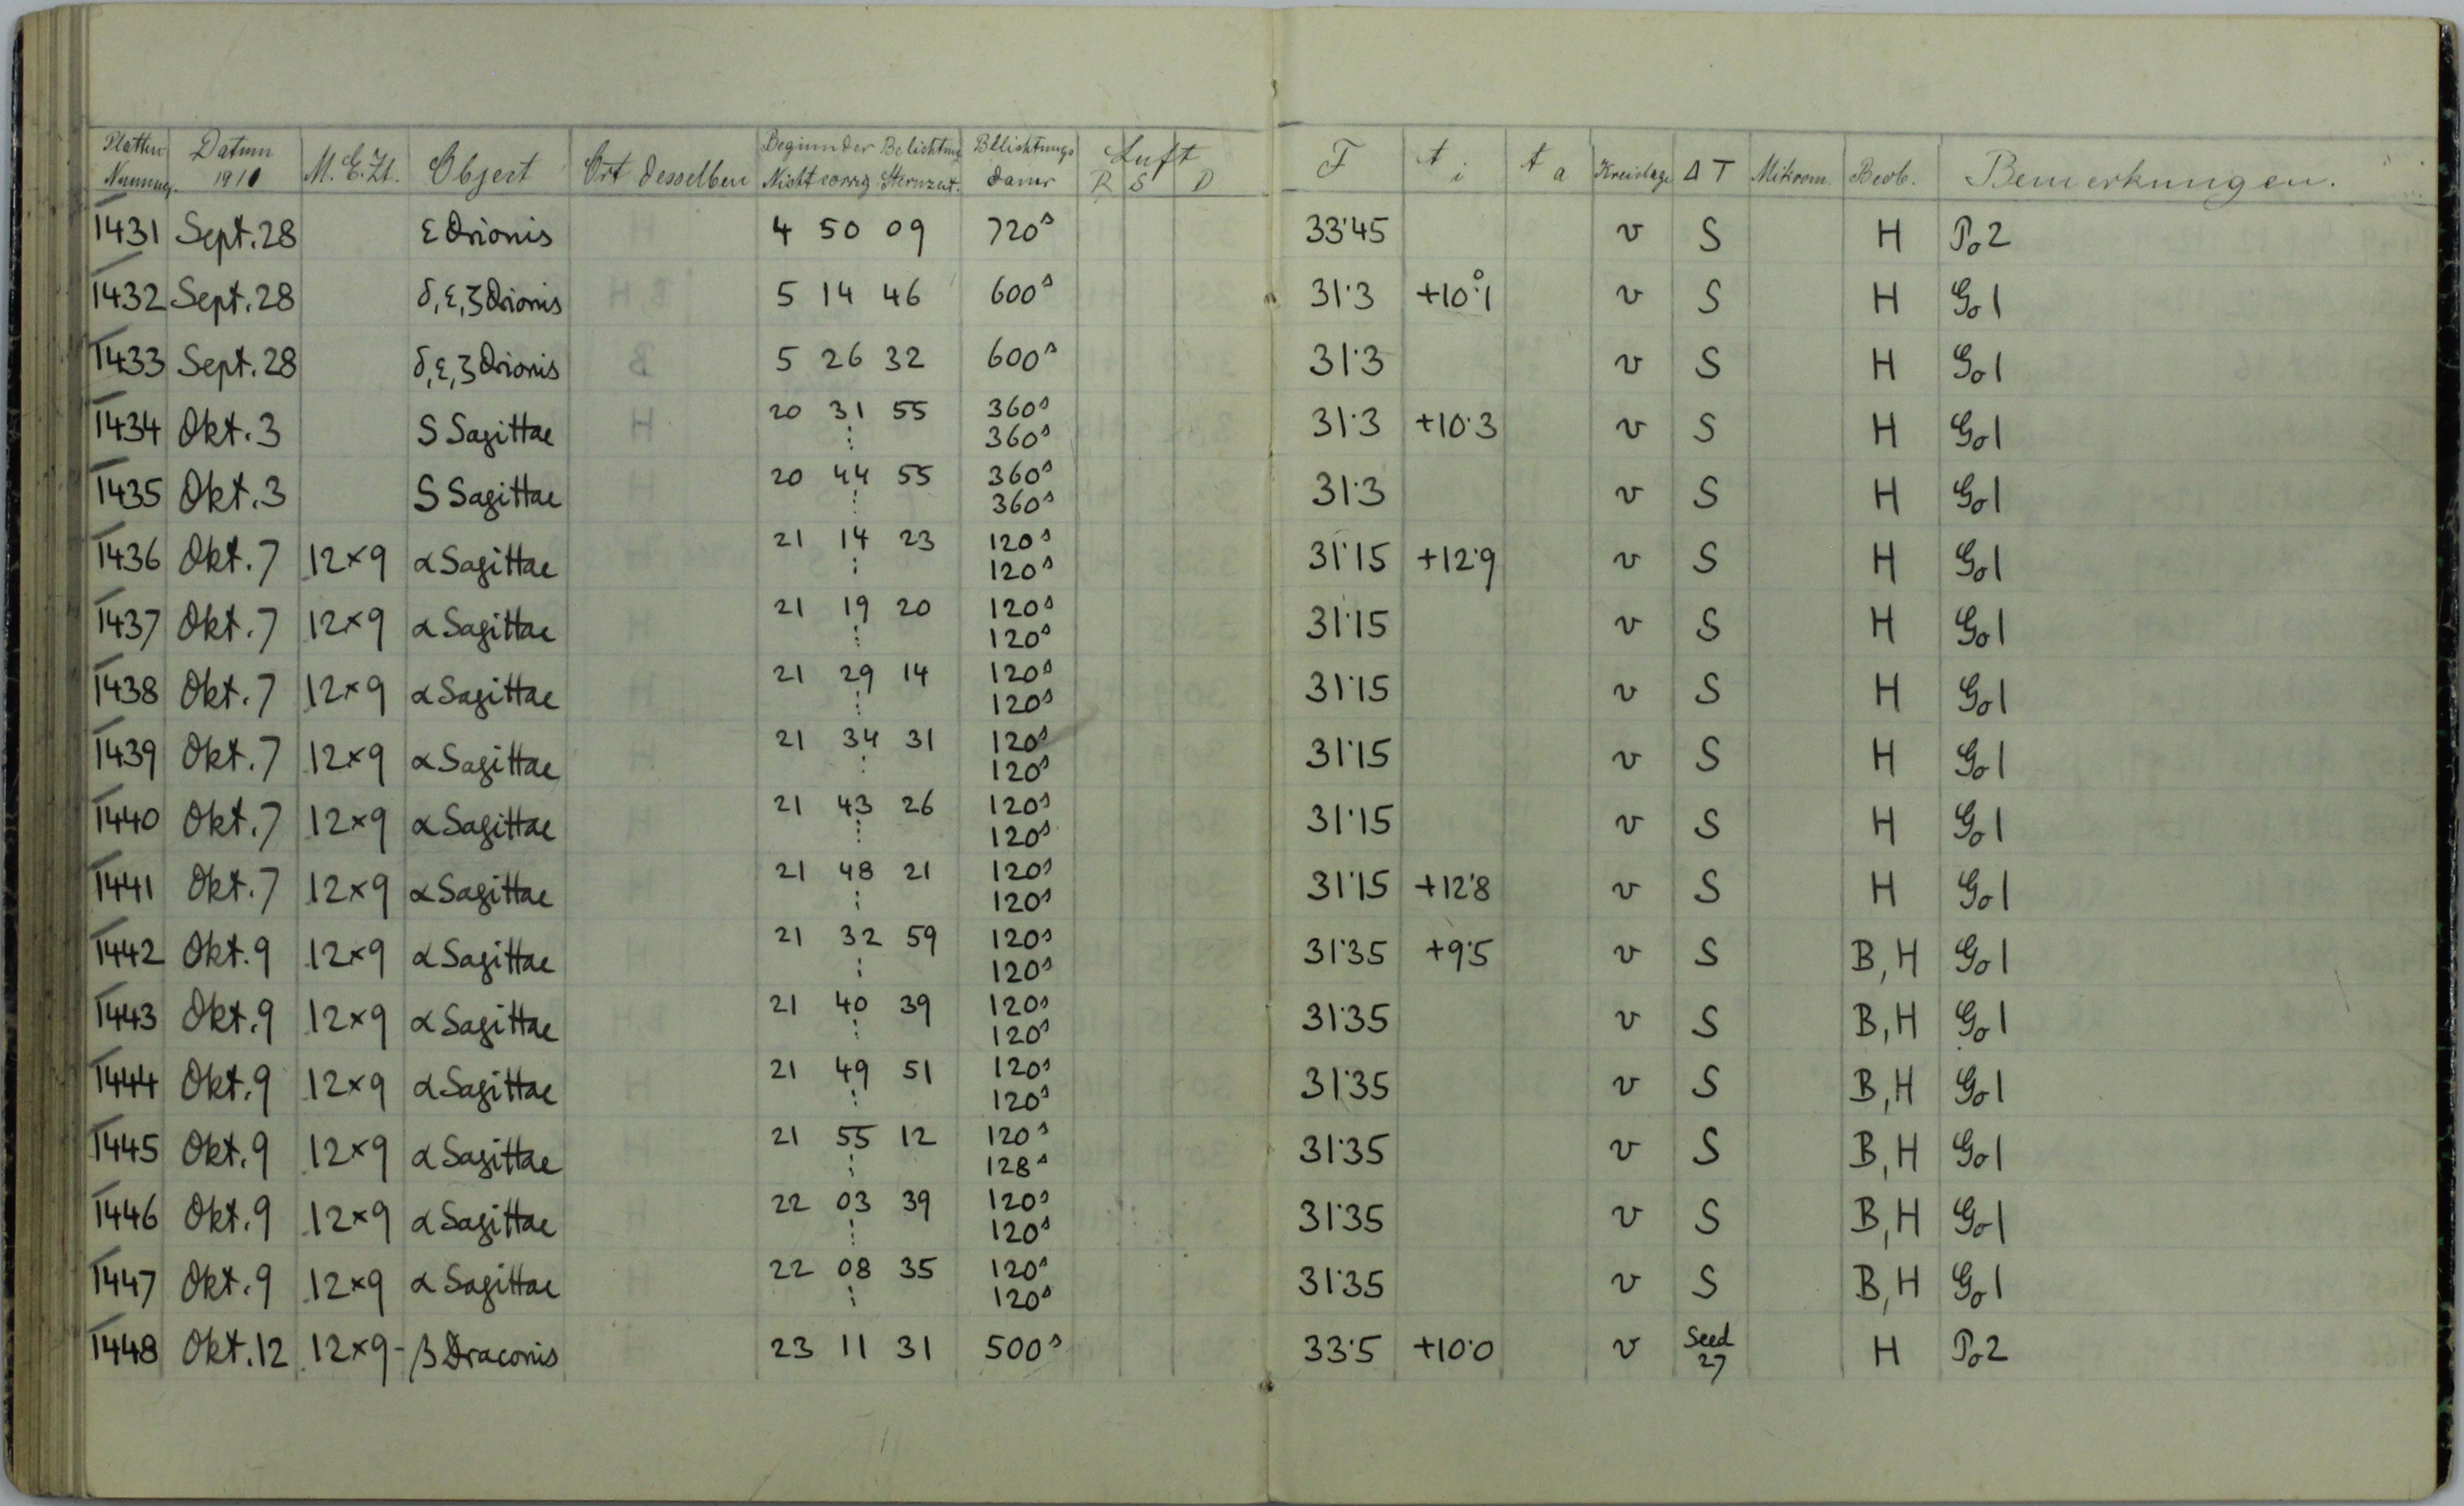 Platten Nummer. Datum 1910 M.E.Zt. Object Ort desselben Beginn der Belichtung Nicht corrig. Sternzeit. Belichtungs dauer Luft R S D F t i t a Kreislage Δ T Mikrom. Beob. Bemerkungen.
1431 Sept. 28 ε Orionis 4 50 09 720ˢ 33·45 v S H Po 2
1432 Sept. 28 δ, ε, ζ Orionis 5 14 46 600ˢ 31·3 +10·°1 v S H Go 1
1433 Sept. 28 δ, ε, ζ Orionis 5 26 32 600ˢ 31·3 v S H Go 1
1434 Okt. 3 S Sagittae 20 31 55 ⋮ 360ˢ 360ˢ 31·3 +10·3 v S H Go 1
1435 Okt. 3 S Sagittae 20 44 55 ⋮ 360ˢ 360ˢ 31·3 v S H Go 1
1436 Okt. 7 12×9 α Sagittae 21 14 23 ⋮ 120ˢ 120ˢ 31·15 +12·9 v S H Go 1
1437 Okt. 7 12×9 α Sagittae 21 19 20 ⋮ 120ˢ 120ˢ 31·15 v S H Go 1
1438 Okt. 7 12×9 α Sagittae 21 29 14 ⋮ 120ˢ 120ˢ 31·15 v S H Go 1
1439 Okt. 7 12×9 α Sagittae 21 34 31 ⋮ 120ˢ 120ˢ 31·15 v S H Go 1
1440 Okt. 7 12×9 α Sagittae 21 43 26 ⋮ 120ˢ 120ˢ 31·15 v S H Go 1
1441 Okt. 7 12×9 α Sagittae 21 48 21 ⋮ 120ˢ 120ˢ 31·15 +12·8 v S H Go 1
1442 Okt. 9 12×9 α Sagittae 21 32 59 ⋮ 120ˢ 120ˢ 31·35 +9·5 v S B, H Go 1
1443 Okt. 9 12×9 α Sagittae 21 40 39 ⋮ 120ˢ 120ˢ 31·35 v S B, H Go 1
1444 Okt. 9 12×9 α Sagittae 21 49 51 ⋮ 120ˢ 120ˢ 31·35 v S B, H Go 1
1445 Okt. 9 12×9 α Sagittae 21 55 12 ⋮ 120ˢ 128ˢ 31·35 v S B, H Go 1
1446 Okt. 9 12×9 α Sagittae 22 03 39 ⋮ 120ˢ 120ˢ 31·35 v S B, H Go 1
1447 Okt. 9 12×9 α Sagittae 22 08 35 ⋮ 120ˢ 120ˢ 31·35 v S B, H Go 1
1448 Okt. 12 12×9 - β Draconis 23 11 31 500ˢ 33·5 +10·0 v Seed 27 H Po 2